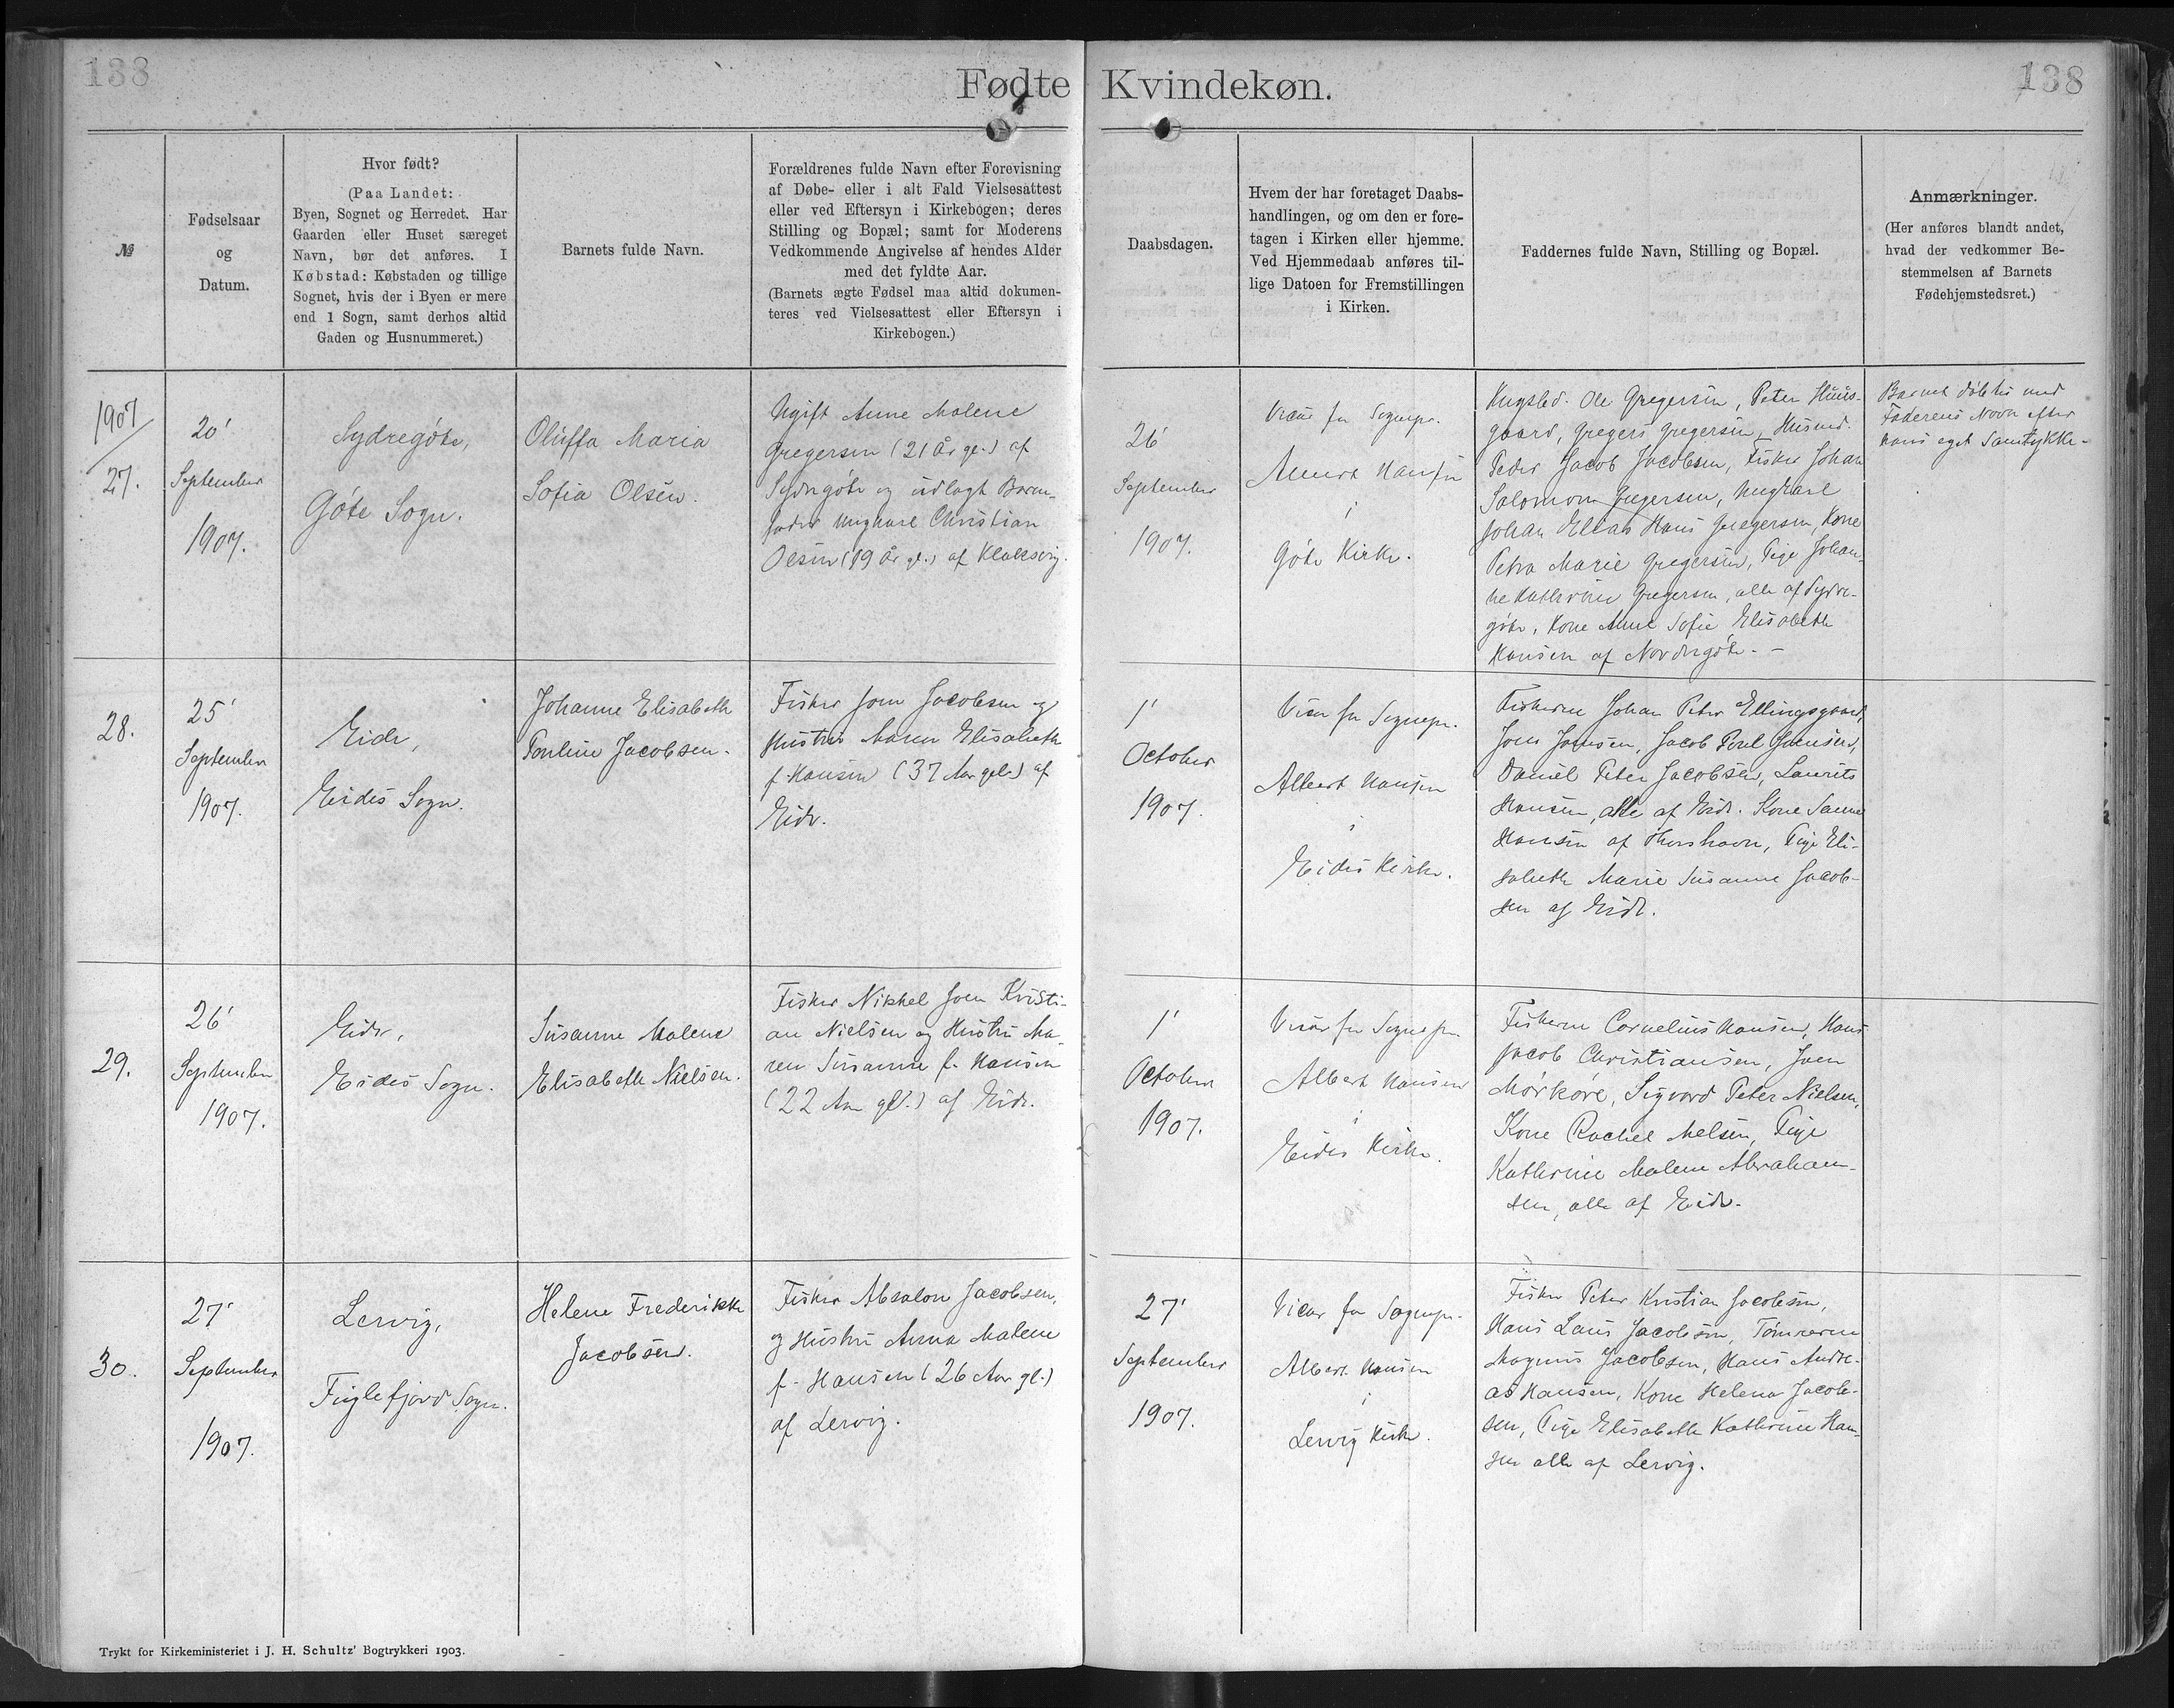 138
Fødte Kvindekøn.
138
№
Fødselsaar
og
Datum.
Hvor født?
(Paa Landet:
Byen, Sognet og Herredet. Har
Gaarden eller Huset særeget
Navn, bør det anføres. I
Købstad: Købstaden og tillige
Sognet, hvis der i Byen er mere
end 1 Sogn, samt derhos altid
Gaden og Husnummeret.)
Barnets fulde Navn.
Forældrenes fulde Navn efter Forevisning
af Døbe- eller i alt Fald Vielsesattest
eller ved Eftersyn i Kirkebogen; deres
Stilling og Bopæl; samt for Moderens
Vedkommende Angivelse af hendes Alder
med det fyldte Aar.
(Barnets ægte Fødsel maa altid dokumen-
teres ved Vielsesattest eller Eftersyn i
Kirkebogen.)
Daabsdagen.
Hvem der har foretaget Daabs-
handlingen, og om den er fore-
tagen i Kirken eller hjemme.
Ved Hjemmedaab anføres til-
lige Datoen for Fremstillingen
i Kirken.
Faddernes fulde Navn, Stilling og Bopæl.
Anmærkninger.
(Her anføres blandt andet,
hvad der vedkommer Be-
stemmelsen af Barnets
Fødehjemstedsret.)
1907
27.
20'
September
1907.
Sydregöte,
Göte Sogn.
Oluffa Maria
Sofia Olsen.
Ugift Anne Malene
Gregersen (21 år gl.) af
Sydregöte og udlagt Barne-
fader Ungkarl Christian
Olsen (19 år gl.) af Klaksvig.
26'
September
1907.
Vicar for Sognepr.
Albert Hansen
i
Göte Kirke.
Kugsbd. Ole Gregersen, Peter Huus-
gaard, Gregers Gregersen, Husmd.
Peder Jacob Jacobsen, Fisker Johan
Salomon Gregersen, Ungkarl
Johan Elias Hans Gregersen, Kone
Petra Marie Gregersen, Pige Johan-
ne Kathrine Gregersen, alle af Sydre-
göte, Kone Anne Sofie Elisabeth
Hansen af Nordregöte. -
Barnet döbtes med
Faderens Navn efter
hans eget Samtykke.
28.
25'
September
1907.
Eide,
Eides Sogn.
Johanne Elisabeth
Pouline Jacobsen.
Fisker Joen Jacobsen og
Hustru Maren Elisabeth
f. Hansen (37 Aar gl.) af
Eide.
1'
October
1907.
Vicar for Sognepr.
Albert Hansen
i
Eides Kirke.
Fiskerne Johan Peter Ellingsgaard,
Jens Jensen, Jacob Poul Joensen,
Daniel Peter Jacobsen, Laurits
Hansen, alle af Eide. Kone Sanne
Hansen af Thorshavn, Pige Eli-
sabeth Marie Susanne Jacob-
sen af Eide.
29.
26'
September
1907.
Eide,
Eides Sogn.
Susanne Malene
Elisabeth Nielsen.
Fisker Nikkel Joen Kristi-
an Nielsen og Hustru Ma-
ren Susanne f. Hansen
(22 Aar gl.) af Eide.
1'
October
1907.
Vicar for Sognepr.
Albert Hansen
i
Eides Kirke.
Fiskerne Cornelius Hansen, Hans
Jacob Christiansen, Joen
Mörköre, Sigvard Peter Nielsen,
Kone Rachel Nielsen, Pige
Kathrine Malene Abraham-
sen, alle af Eide.
30.
27'
September
1907.
Lervig,
Fuglefjord Sogn.
Helene Frederikke
Jacobsen.
Fisker Absalon Jacobsen,
og Hustru Anna Malene
f. Hansen (26 Aar gl.)
af Lervig.
27'
September
1907.
Vicar for Sognepr.
Albert Hansen
i
Lervig Kirke.
Fisker Peter Kristian Jacobsen,
Hans Laus Jacobsen, Tömrerne
Magnus Jacobsen, Hans Andre-
as Hansen, Kone Helena Jacob-
sen, Pige Elisabeth Kathrine Han-
sen alle af Lervig.
Trykt for Kirkeministeriet i J. H. Schultz' Bogtrykkeri 1903.